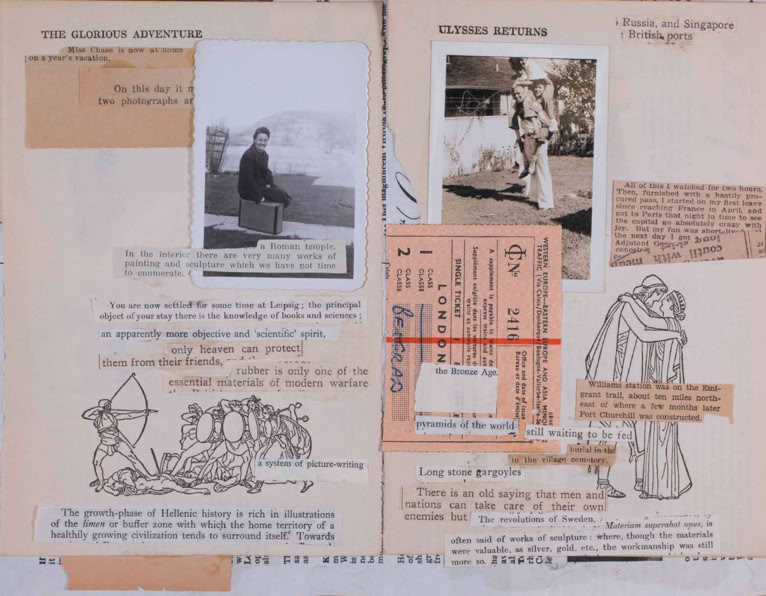 THE GLORIOUS ADVENTURE
Miss Chase is now at home
on a year's vacation,
On this day it
two photographs
a Roman temple.
In the interior there are very many works of
painting and sculpture which we have not time
to enumerate.
You are now settled for some time at Leipsig; the principal
object of your stay there is the knowledge of books and sciences;
an apparently more objective and 'scientific' spirit,
only heaven can protect
them from their friends,
rubber is only one of the
essential materials of modern warfare
a system of picture-writing
The growth-phase of Hellenic history is rich in illustrations
of the limen or buffer zone with which the home territory of a
healthily growing civilization tends to surround itself. Towards
ULYSSES RETURNS
Russia, and Singapore
British ports
All of this I watched for two hours.
Then, furnished with a hastily pro-
cured pass, I started on my first leave
since reaching France in April, and
got to Paris that night in time to see
the capital go absolutely crazy with
joy. But my fun was
the next day I
Adjutant
WESTERN EUROPE—EASTERN EUROPE AND ASIA
TRAFFIC
CN° 2416
Office and date of issue
A supplement is payable
SINGLE TICKET
LONDON
1 CLASS
2 CLASS
the Bronze Age.
pyramids of the world
still waiting to be fed
Williams station was on the Emi-
grant trail, about ten miles north-
east of where a few months later
Fort Churchill was constructed.
burial in the
in the village cemetery.
Long stone gargoyles
There is an old saying that men and
nations can take care of their own
enemies but
The revolutions of Sweden,
Materiam superabat opus, is
often said of works of sculpture: where, though the materials
were valuable, as silver, gold, etc., the workmanship was still
more so.